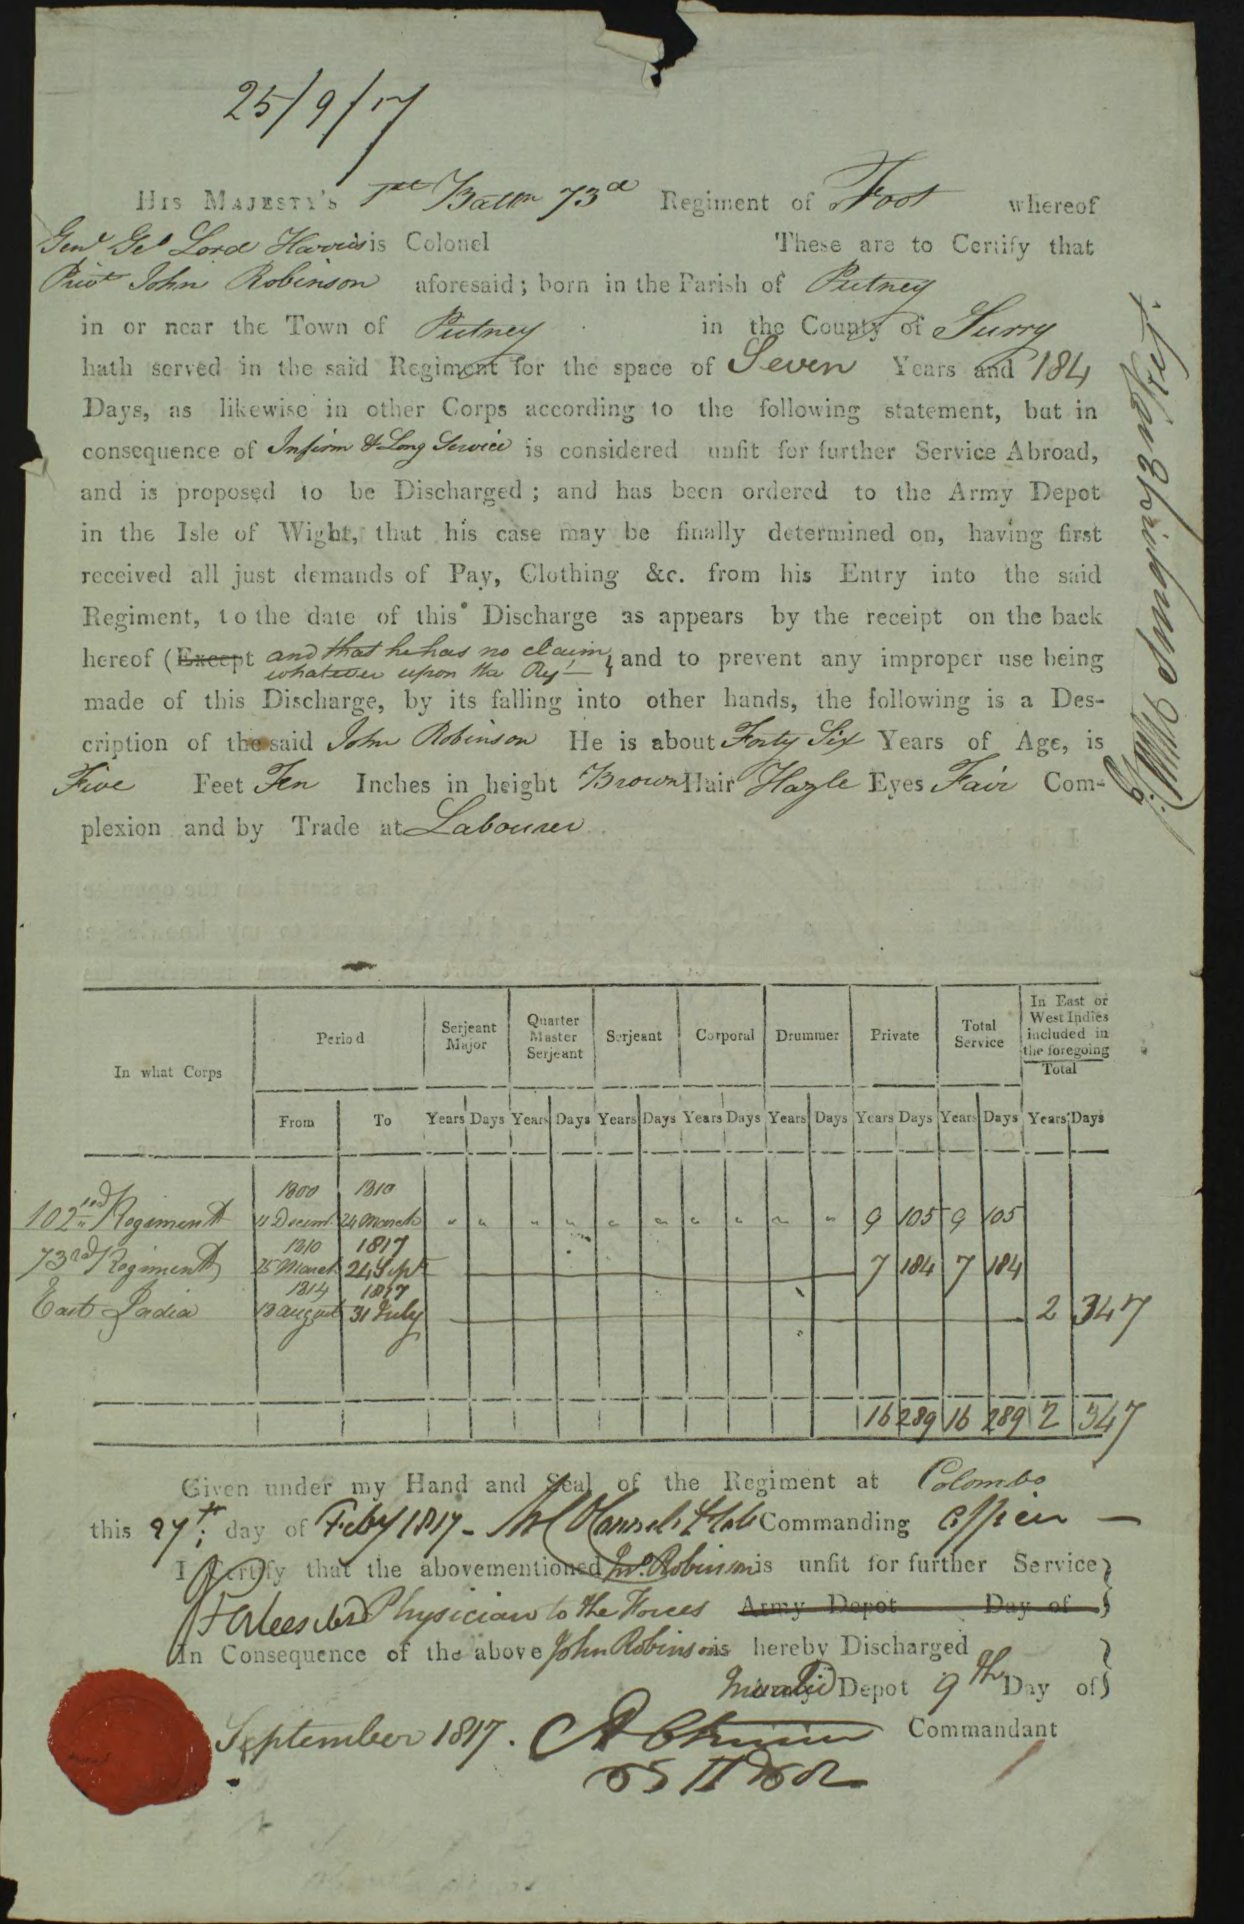 25/9/17
HIS MAJESTY'S 1st Battn 73d Regiment of Foot whereof
Genl Geo Lord Harris is Colonel These are to Certify that
Privt John Robinson aforesaid; born in the Parish of Putney
in or near the Town of Putney in the County of Surry
hath served in the said Regiment for the space of Seven Years and 184
Days, as likewise in other Corps according to the following statement, but in
consequence of Infirm & Long Service is considered unfit for further Service Abroad,
and is proposed to be Discharged; and has been ordered to the Army Depot
in the Isle of Wight, that his case may be finally determined on, having first
received all just demands of Pay, Clothing &c. from his Entry into the said
Regiment, to the date of this Discharge as appears by the receipt on the back
hereof (Except and that he has no claim
whatever upon the Reg— } and to prevent any improper use being
made of this Discharge, by its falling into other hands, the following is a Des-
cription of the said John Robinson He is about Forty Six Years of Age, is
Five Feet Ten Inches in height Brown Hair Hazle Eyes Fair Com-
plexion and by Trade at Labourer
In what Corps Period Serjeant Major Quarter Master Serjeant Serjeant Corporal Drummer Private Total Service In East or West Indies included in the foregoing Total
From To Years Days Years Days Years Days Years Days Years Days Years Days Years Days Years Days
1800 1810
102nd Regiment 11 Decemr 24 March " " " " " " " " " " 9 105 9 105
1810 1817
73rd Regiment 25 March 24 Sept 7 184 7 184
1814 1817
East India 18 August 31 July 2 347
16 289 16 289 2 347
Given under my Hand and Seal of the Regiment at Colombo
this 27th; day of Feby 1817 - Commanding Officer —
I Certify that the abovementioned Jno. Robinson is unfit for further Service
Physician to the Forces Army Depot Day of
In Consequence of the above John Robinson is hereby Discharged
Invalid Depot 9th Day of
September 1817. Commandant
73rd Regt